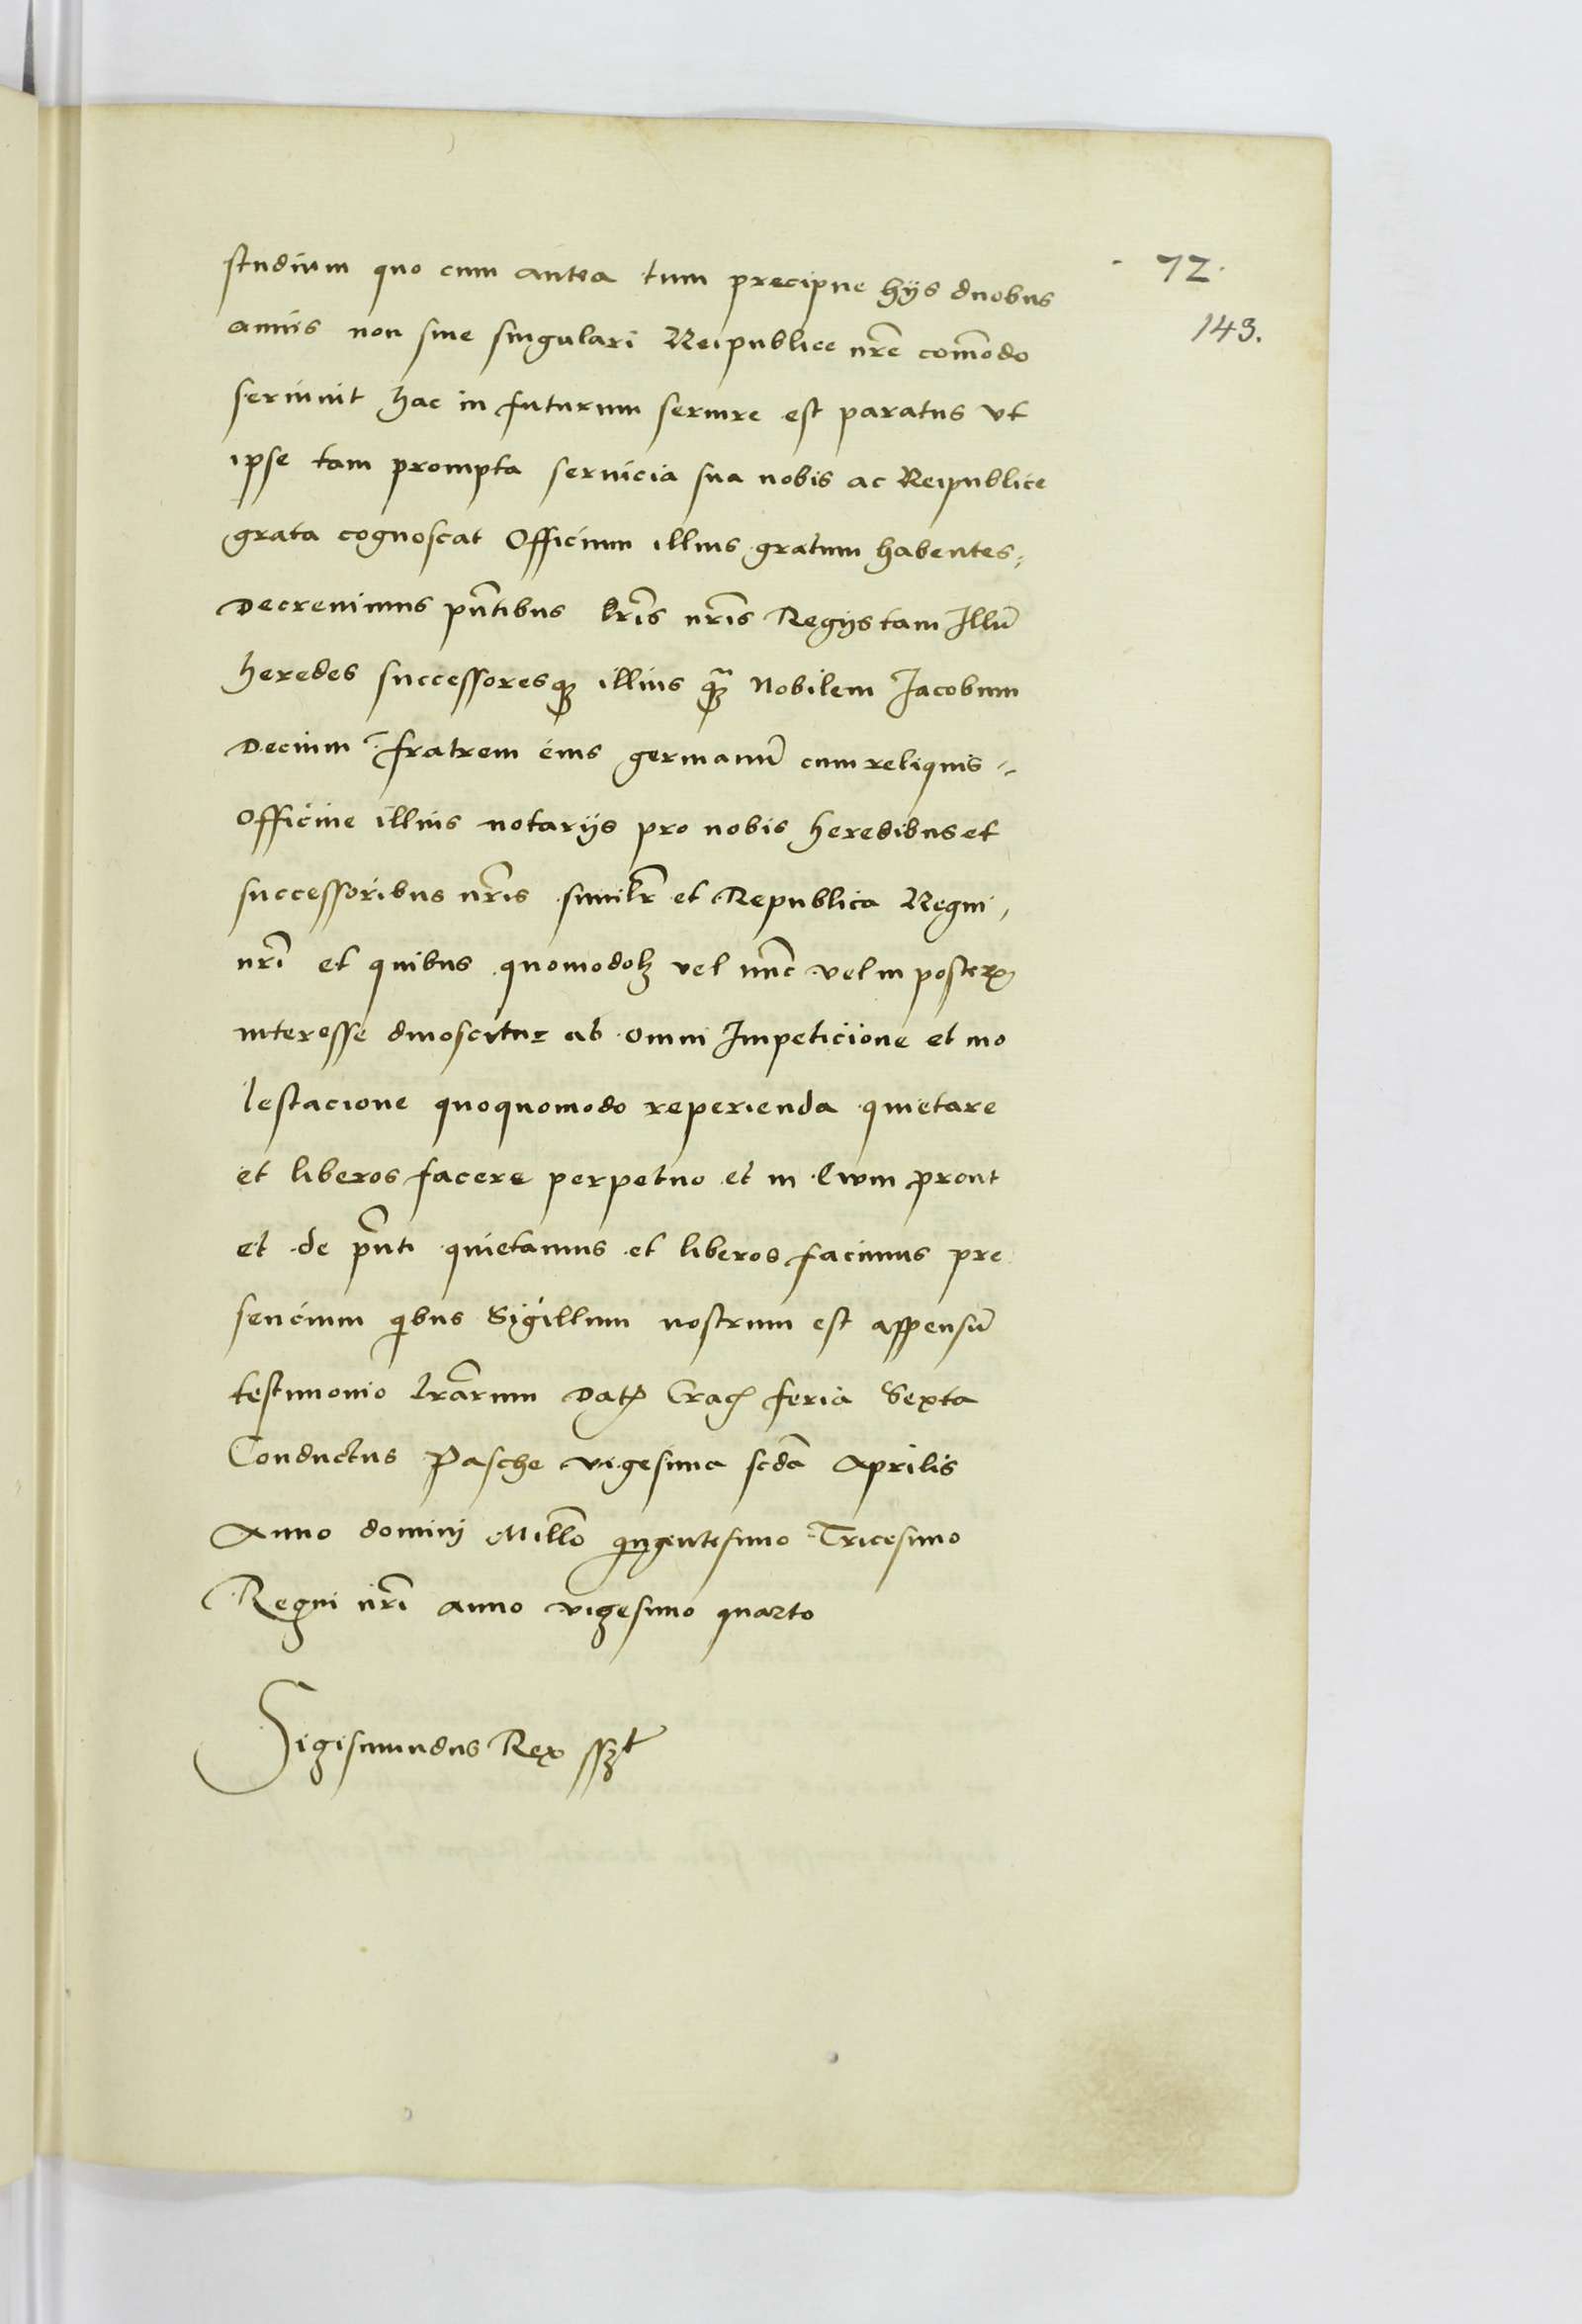 studium quo cum antea tum precipue hijs duobus
72.
annis non sine singulari Reipublice nr̃e com̃odo
143.
seruiuit hac in futurum seruire est paratus vt
ipse tam prompta seruicia sua nobis ac Reipublice
grata cognoscat Officium illius gratum habentes
Decreuimus pñtibus lr̃is nr̃is Regijs tam Illũ
heredes successoresqꝫ illius qꝫ̃ Nobilem Jacobum
Decium fratrem eius germanũ cum reliquis
Officine illius notarijs pro nobis heredibus et
successoribus nr̃is similr̃ et Republica Regni
nr̃i et quibus quomodolꝫ vel nũc vel in posterꝫ
interesse dinoscitur ab omni Impeticione et mo
lestacione quoquomodo reperienda quietare
et liberos facere perpetuo et in Ewm prout
et de pñti quietamus et liberos facimus pre
sencium qibus Sigillum nostrum est appensũ
testimonio lrãrum Datꝫ Cracꝫ feria Sexta
Conductus Pasche vigesima scdã Aprilis
Anno dominj Mill̃o qingentesimo Tricesimo
Regni nr̃i anno vigesimo quarto
Sigismundus Rex sszt